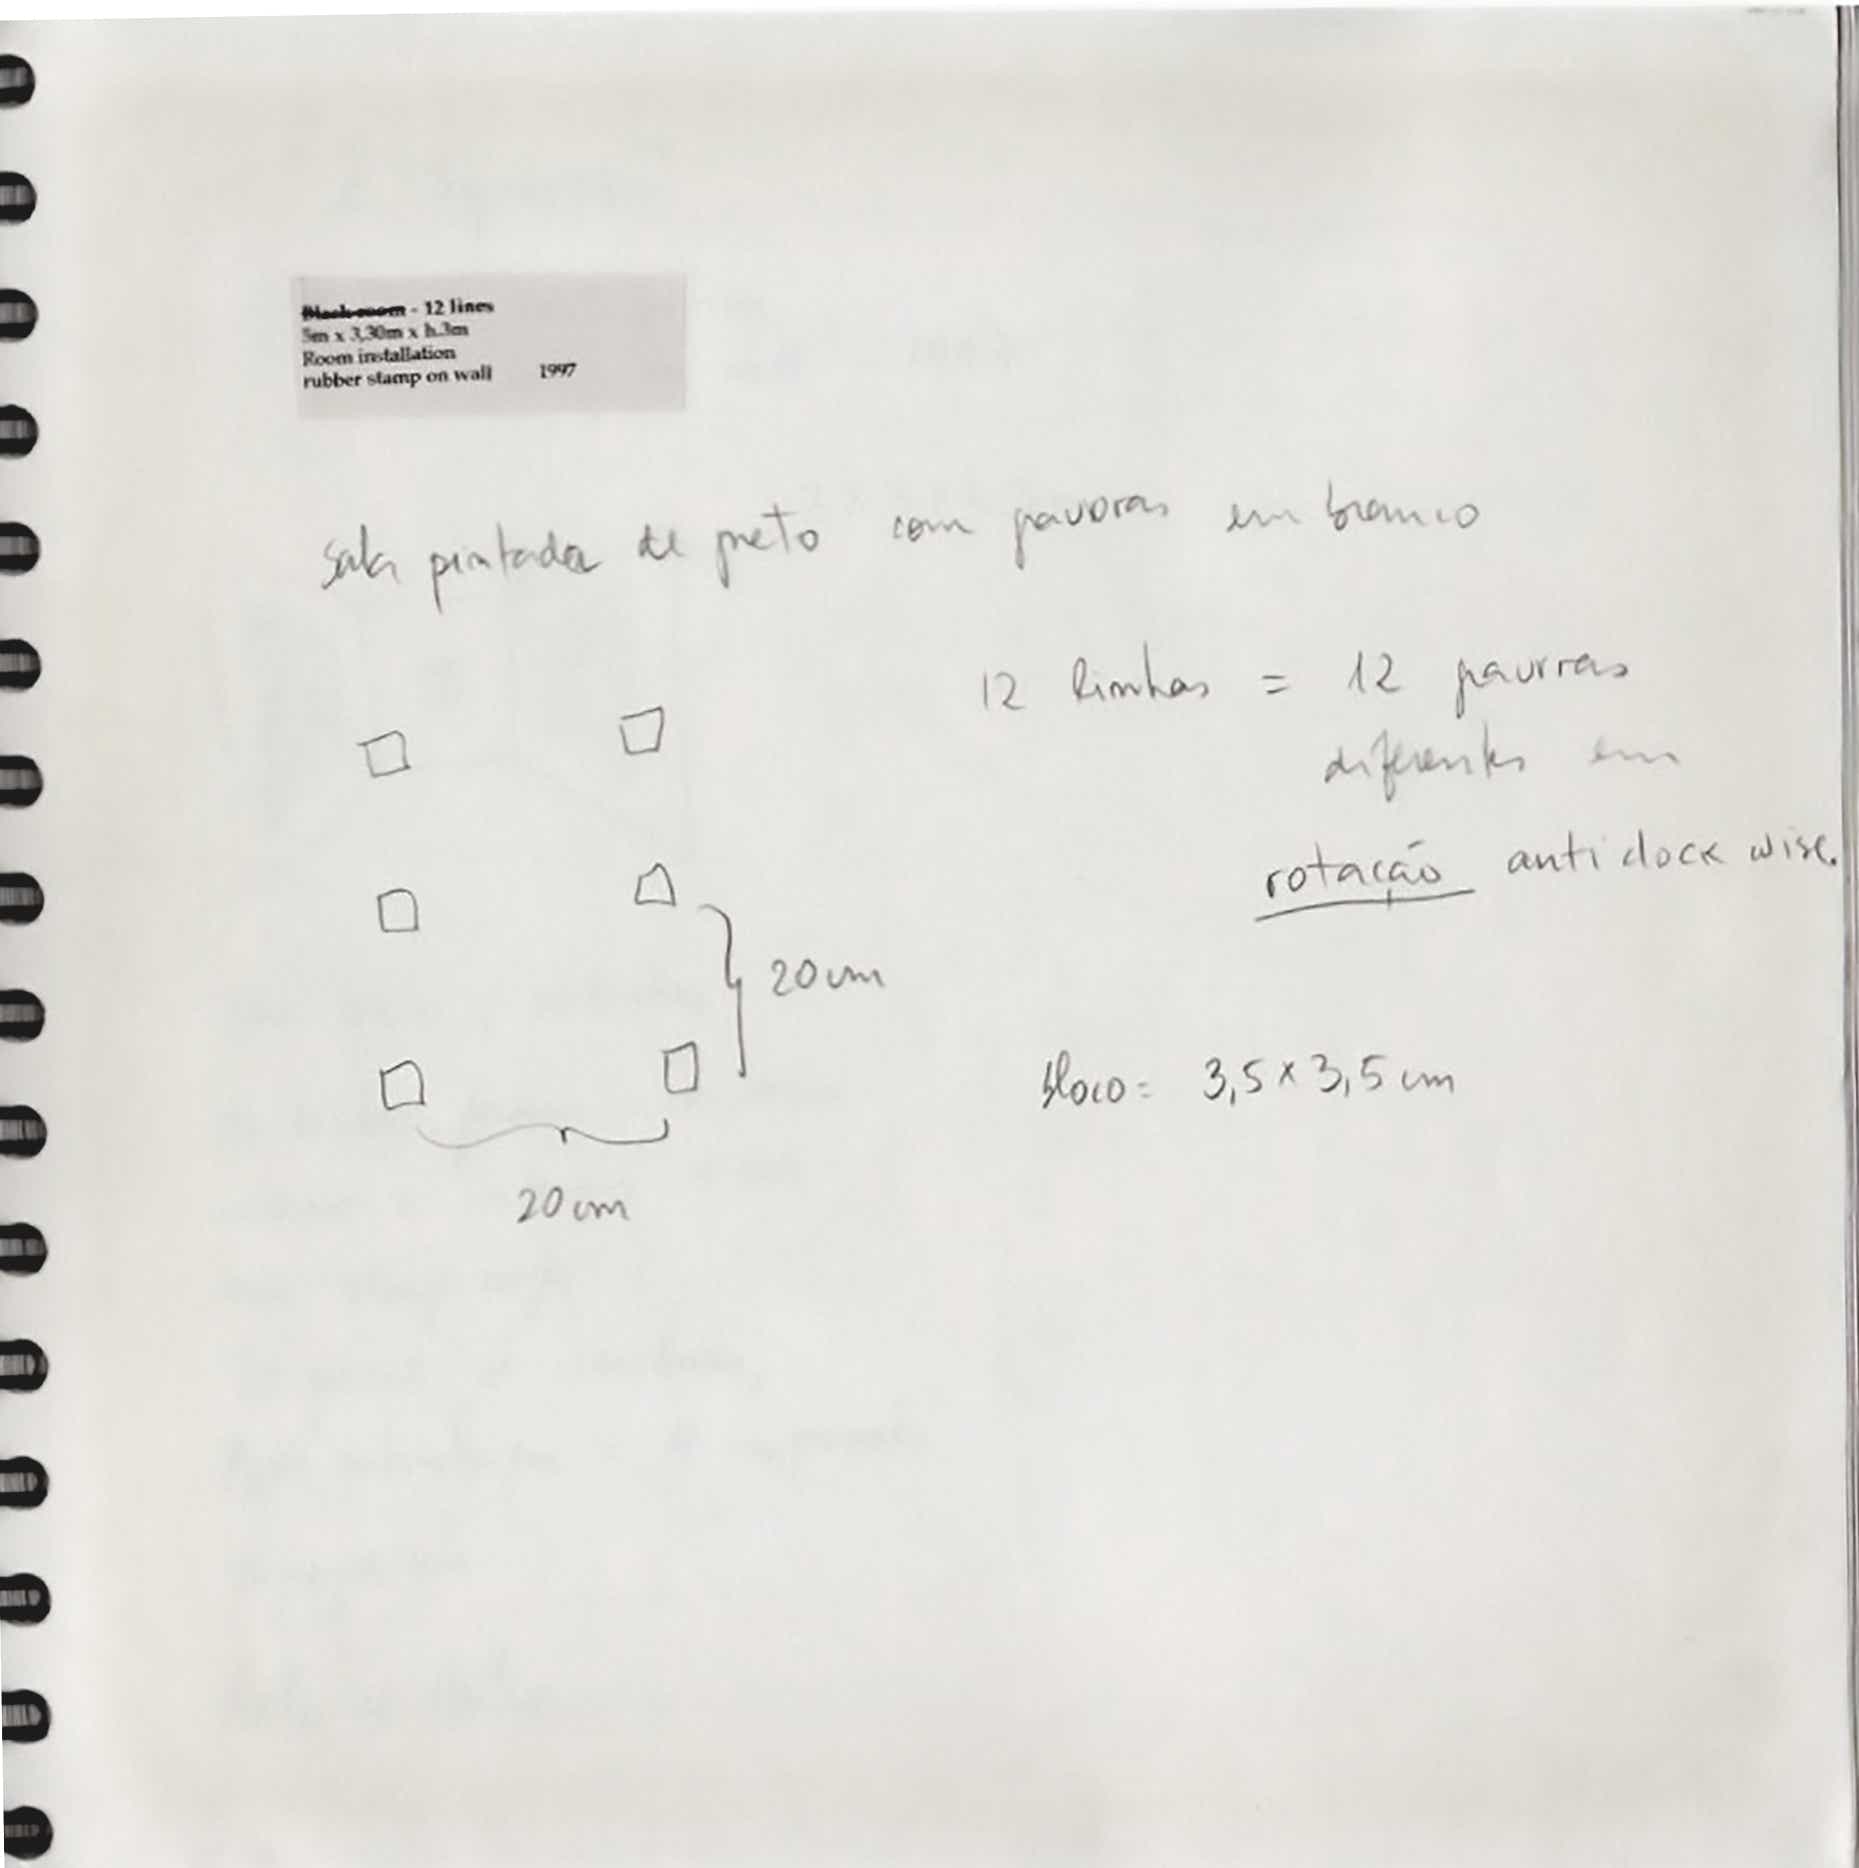 Black room - 12 lines
5m x 3,30m x h.3m
Room installation
rubber stamp on wall 1997
Sala pintada de preto com pavoras em branco
12 linhas = 12 pavrras
diferentes em
rotação anticlock wise.
20 cm
bloco = 3,5 x 3,5 cm
20 cm